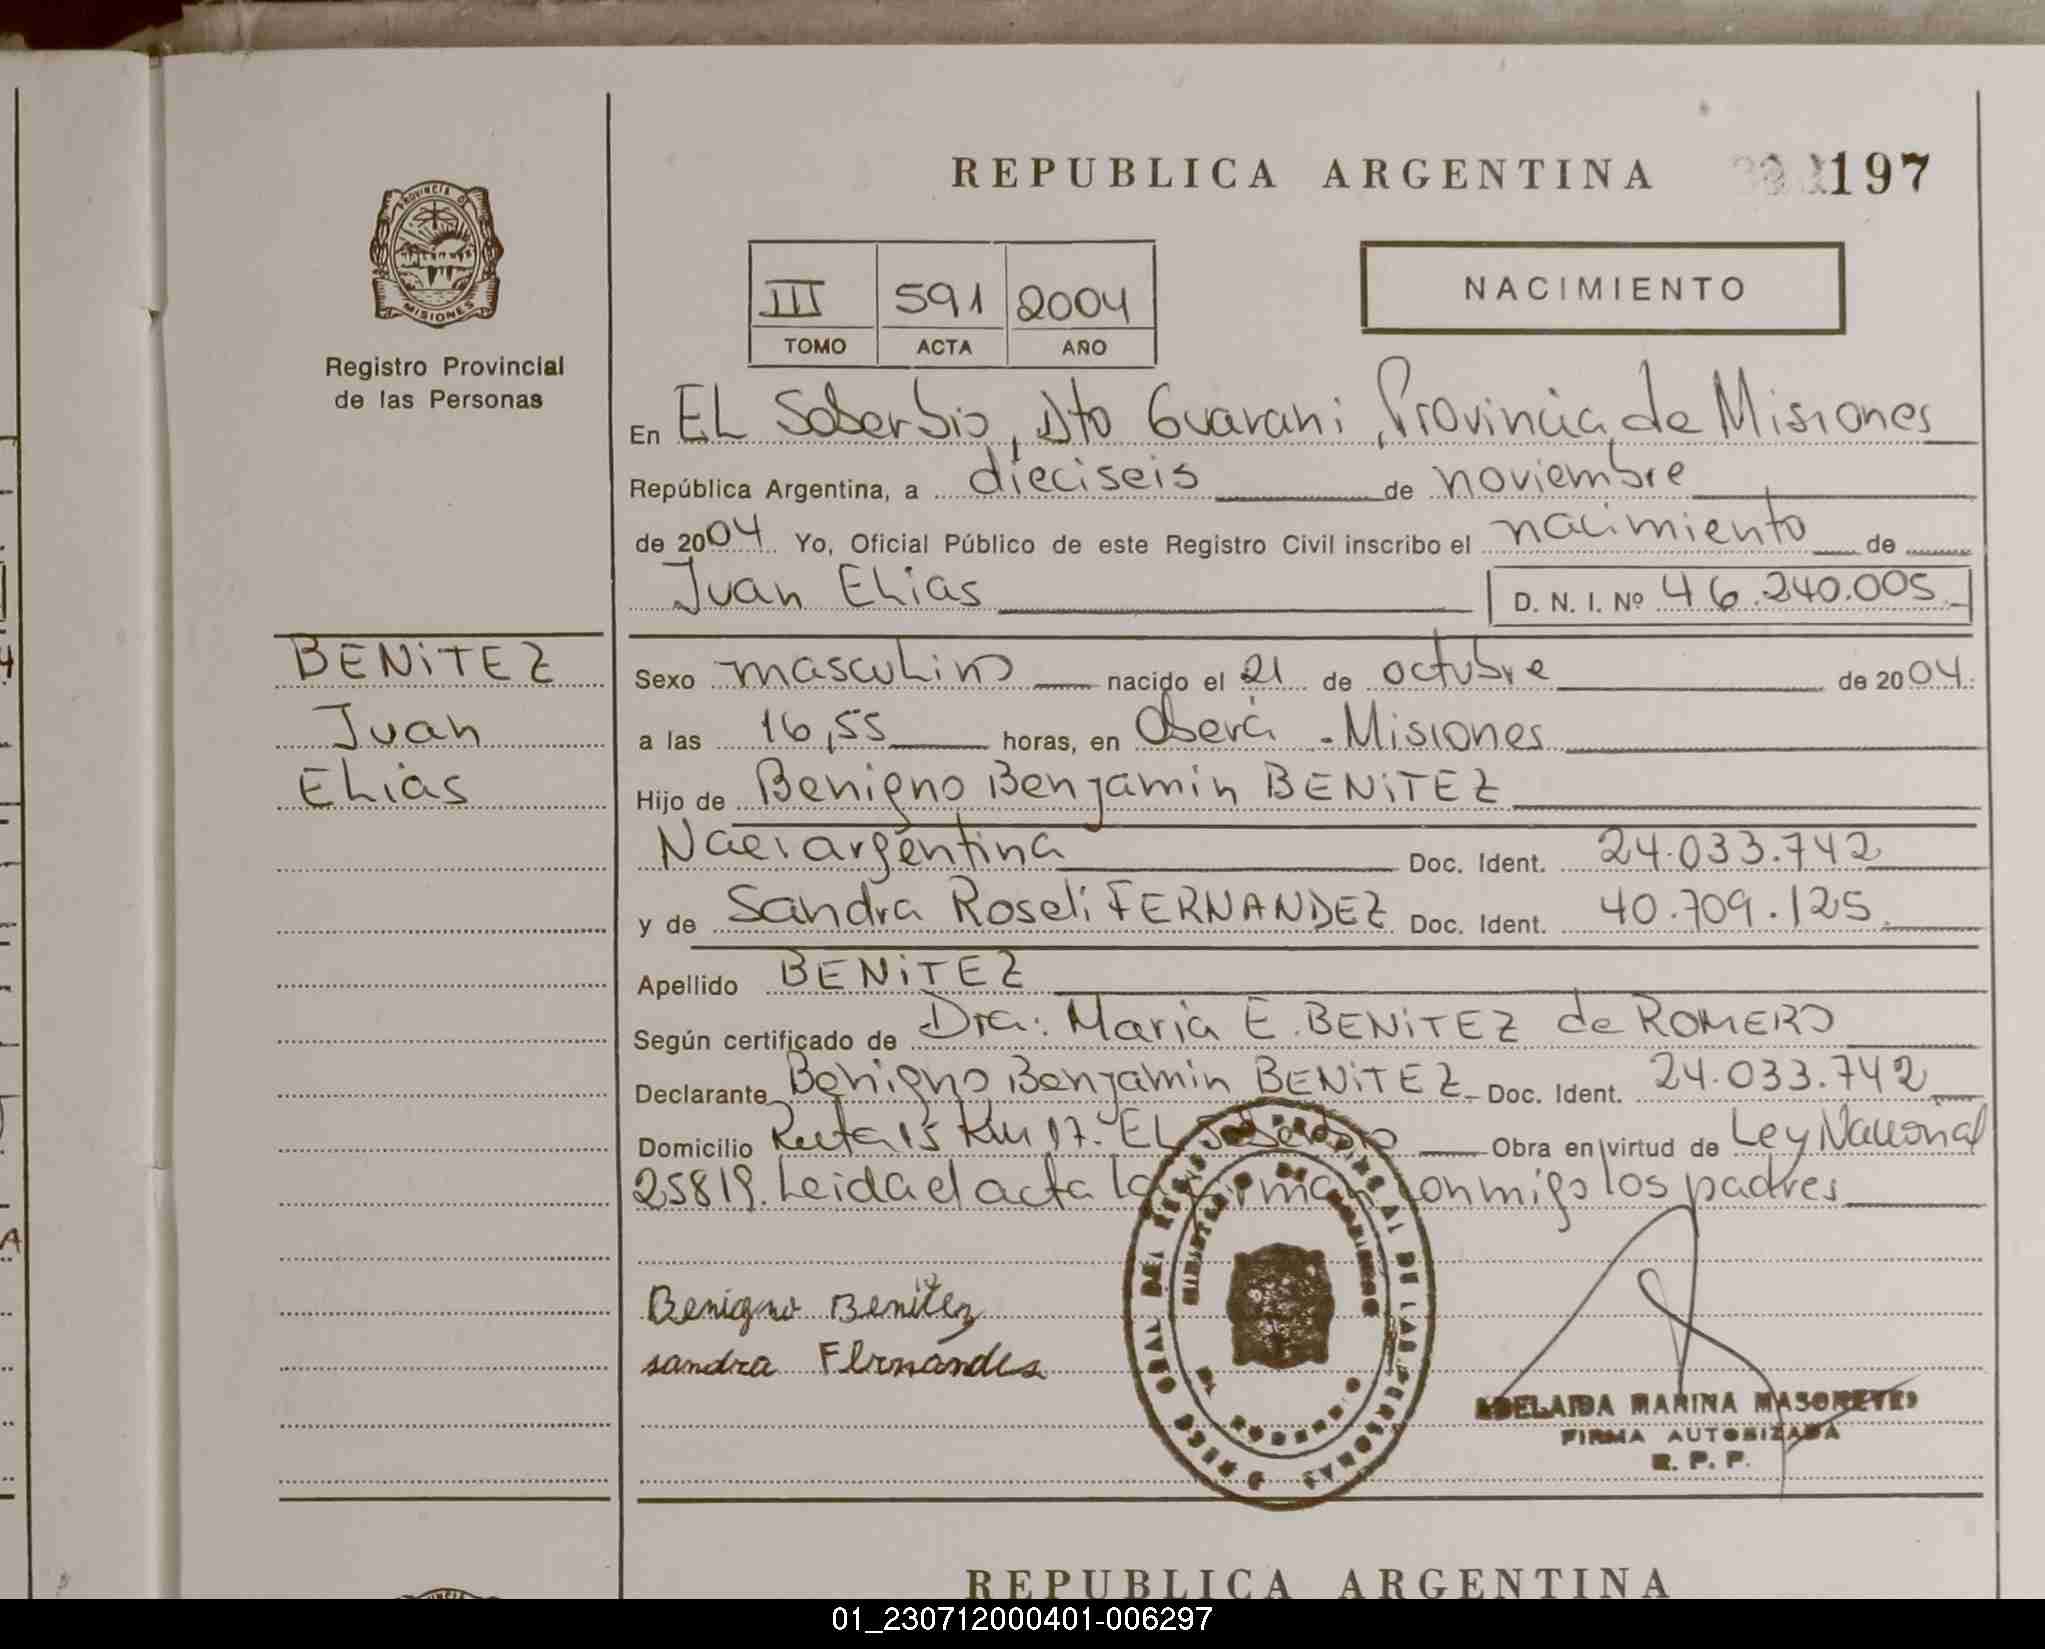 REPUBLICA ARGENTINA
197
PROVINCIA DE
MISIONES
Registro Provincial
de las Personas
III 591 2004
TOMO ACTA AÑO
NACIMIENTO
En EL Soberbio, Dto Guarani, Provincia de Misiones
República Argentina, a dieciseis de noviembre
de 2004 Yo, Oficial Público de este Registro Civil inscribo el nacimiento de
Juan Elias D. N. I. Nº 46.240.005
BENiTEZ
Juan
Elias
Sexo masculino nacido el 21 de octubre de 2004
a las 16,55 horas, en Oberá - Misiones
Hijo de Benigno Benjamin BENiTEZ
Nac. argentina Doc. Ident. 24.033.742
y de Sandra Roseli FERNANDEZ Doc. Ident. 40.709.125
Apellido BENiTEZ
Según certificado de Dra: Maria E. BENiTEZ de ROMERO
Declarante Benigno Benjamin BENiTEZ Doc. Ident. 24.033.742
Domicilio Ruta 15 Km 17. EL Soberbio Obra en virtud de Ley Nacional
25819. Leida el acta la firman conmigo los padres
Benigno Benitez
sandra Fernandes
ADELAIDA MARINA
FIRMA AUTORIZADA
R. P. P.
REPUBLICA ARGENTINA
01_230712000401-006297